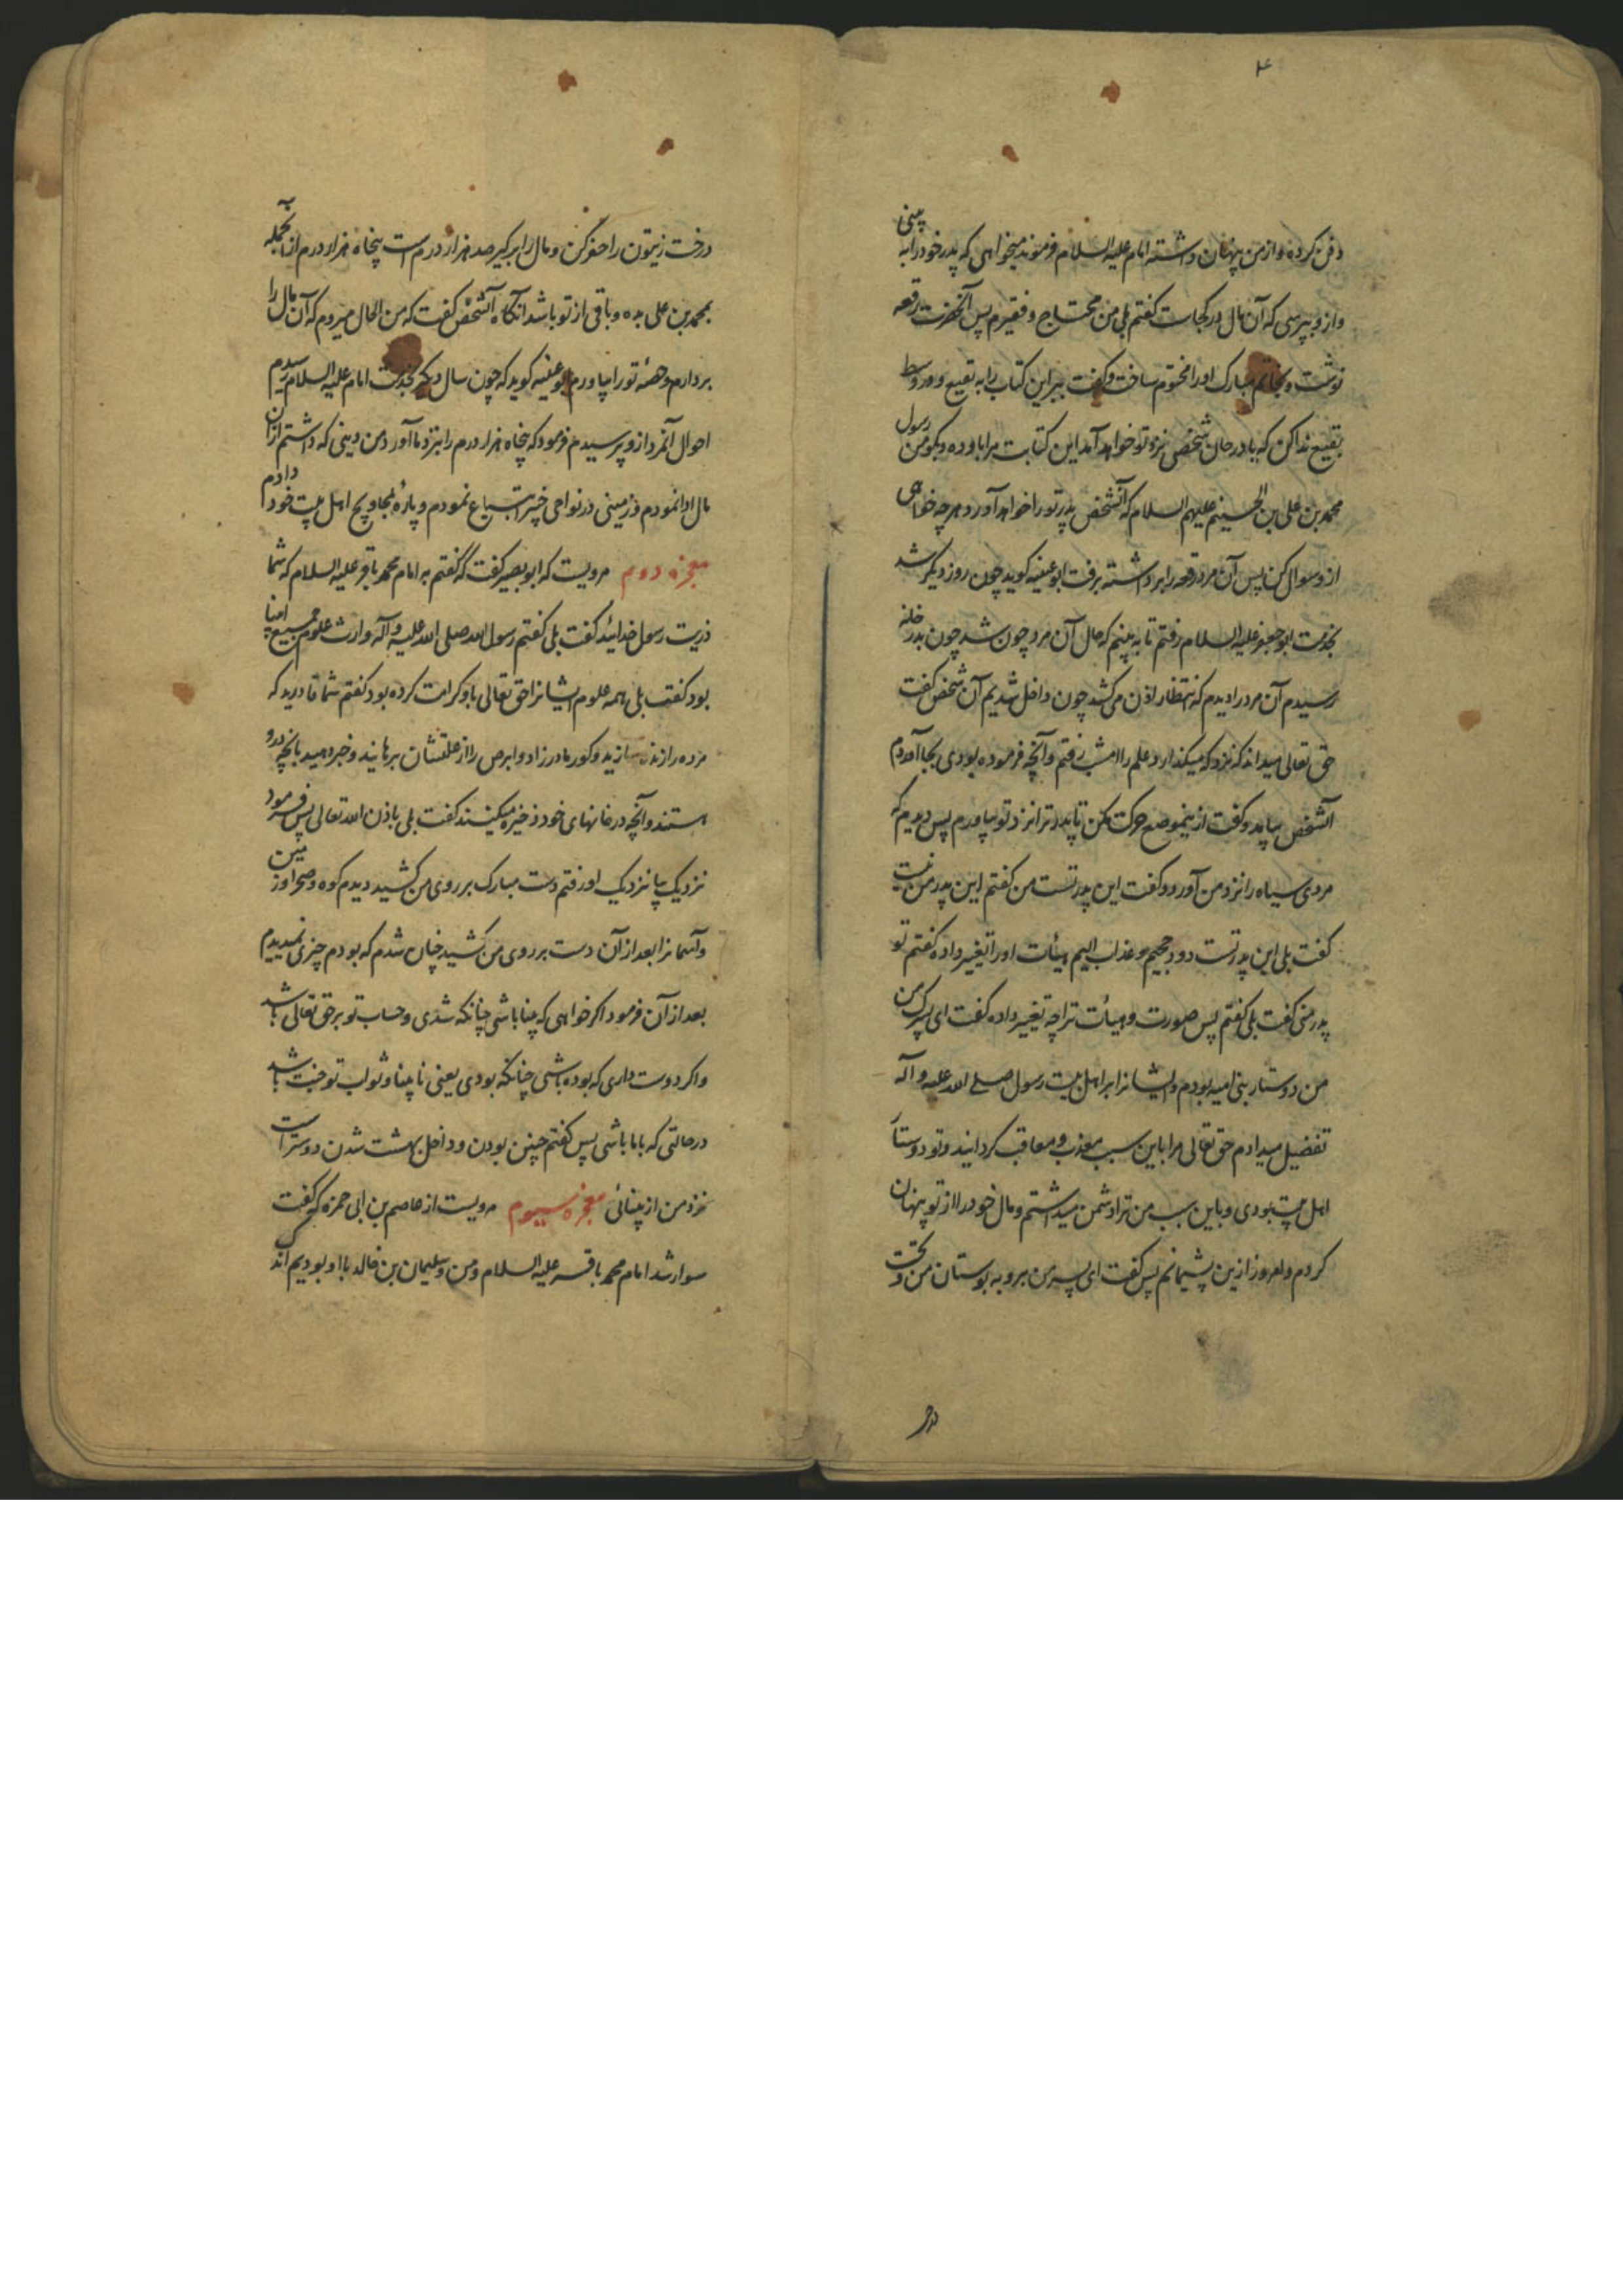 ۴
دفن کرده و از من پنهان داشته امام علیه السلام فرمودند میخواهی که پدر خود را به بینی
و از و بپرسی که آن مال در کجاست گفتم بلی من محتاج و فقیرم پس آنحضرت رقعه
نوشت و بخاتم مبارک او را مختوم ساخت و گفت ببر این کتاب را به بقیع و در وسط
بقیع ندا کن که یا درجان شخصی نزد تو خواهد آمد این کتابت مرا باو ده و بگو من رسول
محمد بن علی بن الحسینم علیهم السلام که آنشخص پدر تو را خواهد آورد و هر چه خواهی
از و سوال کن پس آن مرد رقعه را برداشته برفت ابو عیینه کوید چون روز دیگر شد
بخدمت ابو جعفر علیه السلام رفتم تا به بینم که حال آن مرد چون شد چون بدر خانه
رسیدم آن مرد را دیدم که انتظار اذن می کشد چون داخل شدیم آن شخص گفت
حق تعالی میداند که نزد که میگذارد علم را امشب رفتم و آنچه فرموده بودی بجا آوردم
آنشخص بیامد و گفت از ینموضع حرکت مکن تا پدر ترا نزد تو بیاورم پس دیدم که
مردی سیاه را نزد من آورد و گفت این پدر تست من گفتم این پدر من نیست
گفت بلی این پدر تست دود جحیم و عذاب الیم هیئات او را تغییر داده گفتم تو
پدر منی گفت بلی گفتم پس صورت و هیئات ترا چه تغییر داده گفت ای پسرک من
من دوستار بنی امیه بودم و ایشانرا بر اهل بیت رسول صلی الله علیه و آله
تفضیل میدادم حق تعالی مرا باین سبب معذب و معاقب کردانید و تو دوستار
اهل بیت بودی و باین سبب من ترا دشمن میداشتم و مال خود را از تو پنهان
کردم و امروز ازین پشیمانم پس گفت ای پسر من برو به بوستان من و تحت
در
درخت زیتون را حفر کن و مال را بر گیر صد هزار درم است پنجاه هزار درم از آنجمله به
بمحمد بن علی بده و باقی از تو باشد آنگاه آنشخص گفت که من الحال میروم که آن مال را
بردارم و حصهٔ تو را بیاورم ابو عیینه کوید که چون سال دیگر بخدمت امام علیه السلام رسیدم
احوال آنمرد از و پرسیدم فرمود که پنجاه هزار درم را بنزد ما آورد من دینی که داشتم از آن
مال ادا نمودم و زمینی در نواحی خیبر ابتیاع نمودم و پارهٔ بمحاویج اهل بیت خود دادم
معجزه دوم مرویست که ابو بصیر گفت که گفتم به امام محمد باقر علیه السلام که شما
ذریت رسول خدائید گفت بلی گفتم رسول الله صلی الله علیه و آله وارث علوم جمیع انبیا
بود گفت بلی همه علوم ایشانرا حق تعالی باو کرامت کرده بود گفتم شما قادرید که
مرده را زنده سازید و کور مادر زاد و ابرص را از علتشان برهانید و خبر دهید بانچه مردم
هستند و آنچه در خانهای خود ذخیره میکنند گفت بلی باذن الله تعالی پس فرمود
نزدیک بیا نزدیک او رفتم دست مبارک بر روی من کشید دیدم کوه و صحرا و زمین
و آسمانرا بعد از آن دست بر روی من کشید چنان شدم که بودم چیزی نمیدیدم
بعد از آن فرمود اکر خواهی که بینا باشی چنانکه شدی و حساب تو بر حق تعالی باشد
و اکر دوست داری که بوده باشی چنانکه بودی یعنی نا بینا و ثواب تو جنت باشد
در حالتی که با ما باشی پس گفتم چنین بودن و داخل بهشت شدن دوستر است
نزد من از بینائی معجزه سیوم مرویست از عاصم بن ابی حمزه که گفت
سوار شد امام محمد باقر علیه السلام و من و سلیمان بن خالد با او بودیم اندک